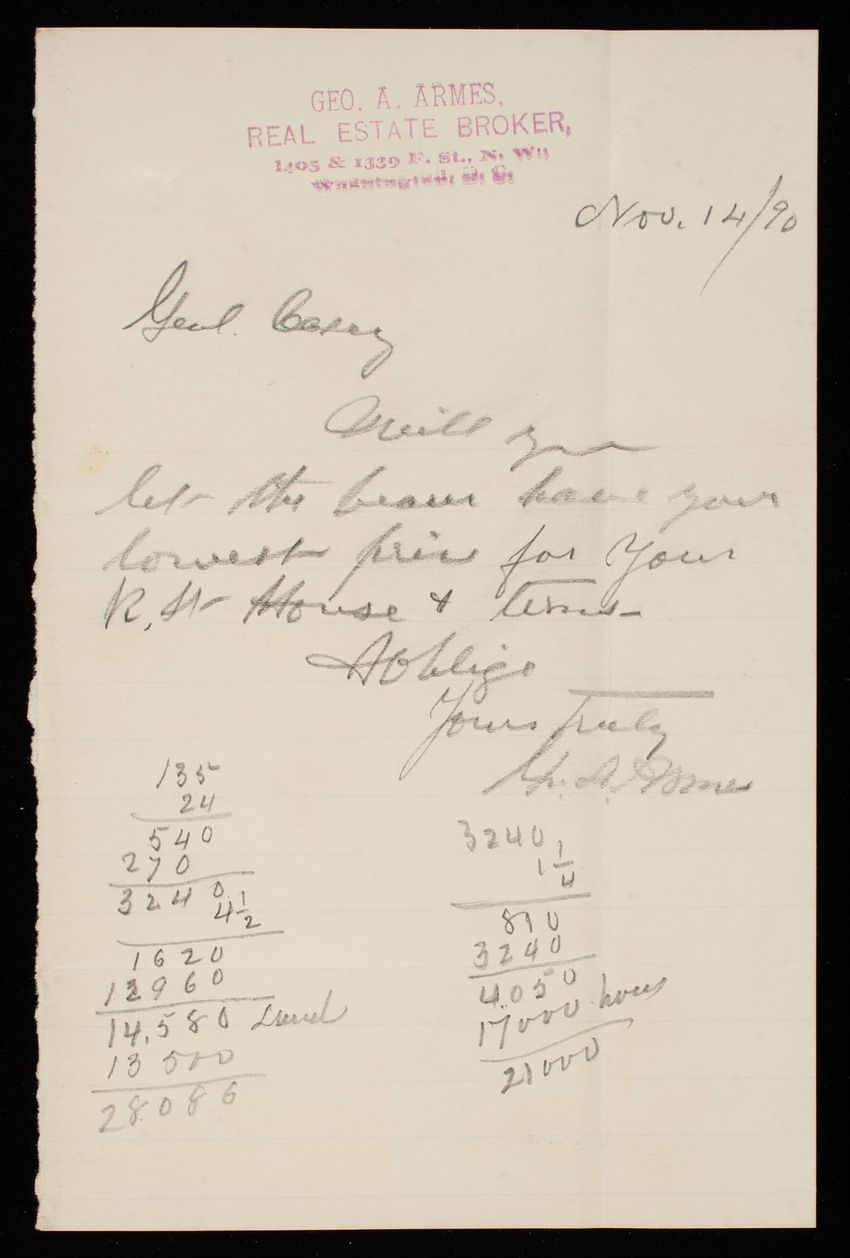 GEO. A. ARMES,
REAL ESTATE BROKER,
1405 & 1339 F. St., N. W.,
Washington, D. C.
Nov. 14/90
Genl. Casey
Will you
let the bearer have your
lowest price for your
K. St House & terms
& Oblige
Yours truly
Geo. A. Armes
135
24
540
270
3240
4 1/2
1620
12960
14,580 Land
13 500
28086
3240
1 1/4
810
3240
4050
17000 house
21000